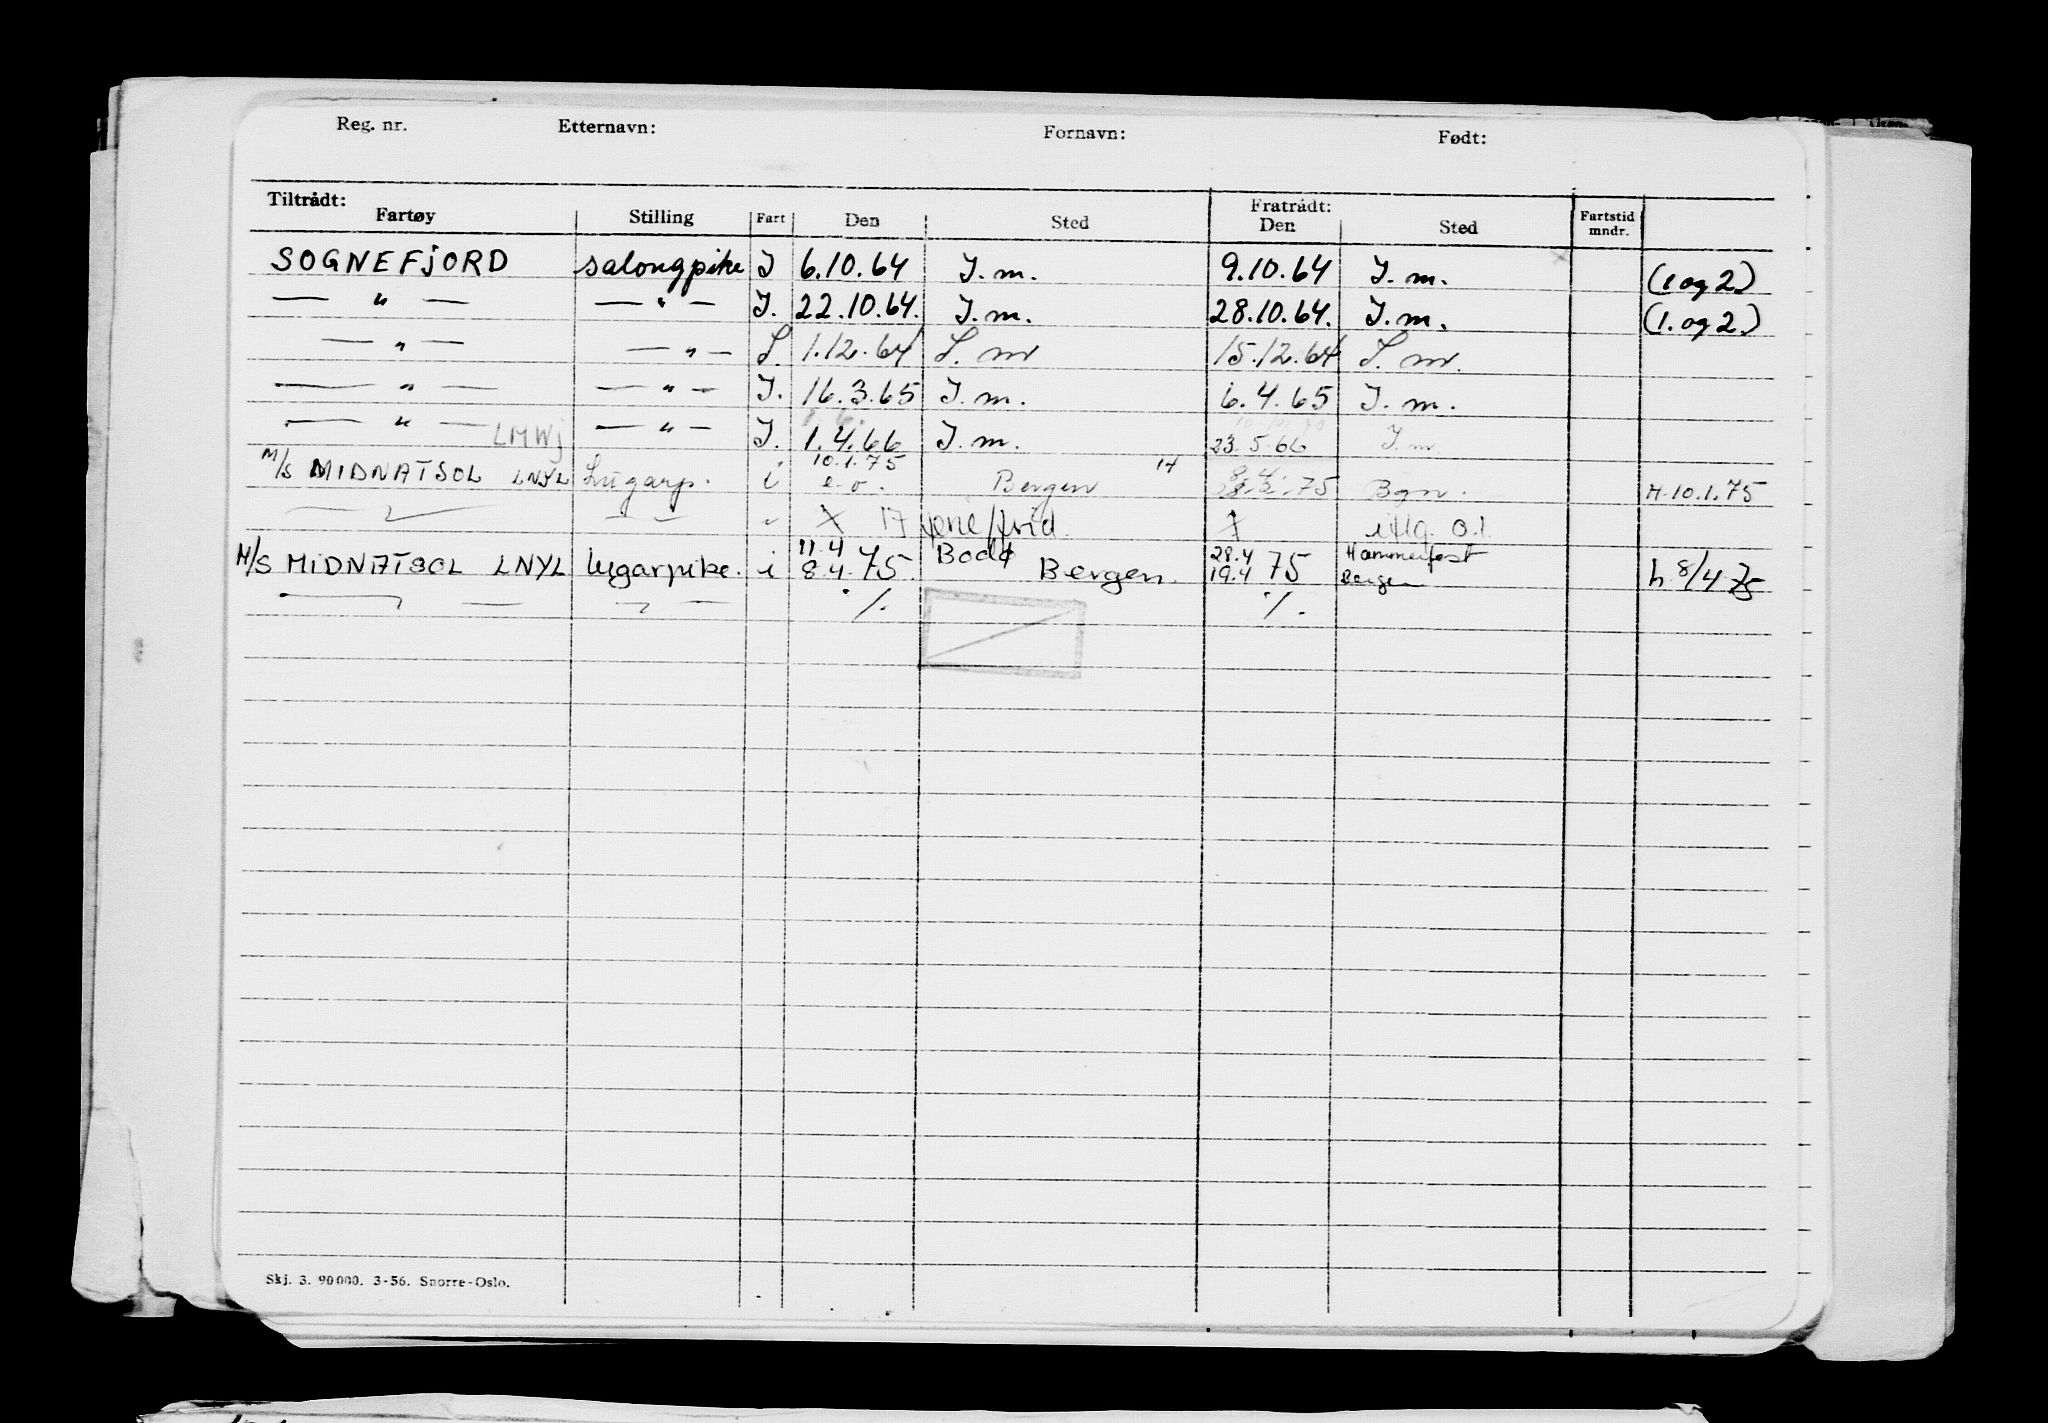 Reg. nr. Etternavn: Fornavn: Født:
Tiltrådt: Fratrådt:
Fartøy Stilling Fart Den Sted Den Sted Fartstid mndr.
SOGNEFJORD salongpike I 6.10.64 I.m. 9.10.64 I.m. (1 og 2)
— " — — " — I. 22.10.64. I.m. 28.10.64. I.m. (1. og 2.)
— " — — " — I. 1.12.64 I.m 15.12.64 I.m.
— " — — " — I. 16.3.65 I.m. 6.4.65 I.m.
— " — LMWJ — " — I. 1.4.66 I.m. 23.5.66 I.m
M/S MIDNATSOL LNYL Lugarp. i 10.1.75 e.o. Bergen 14 75 Bgn. H.10.1.75
17 iflg. o.l.
M/S MIDNATSOL LNYL lugarpike. i 11.4 8.4.75. Bodø Bergen. 28.4 19.4 75 Hammerfest Bergen h. 8/4 75
./. ./.
Skj. 3. 90000. 3-56. Snorre-Oslo.